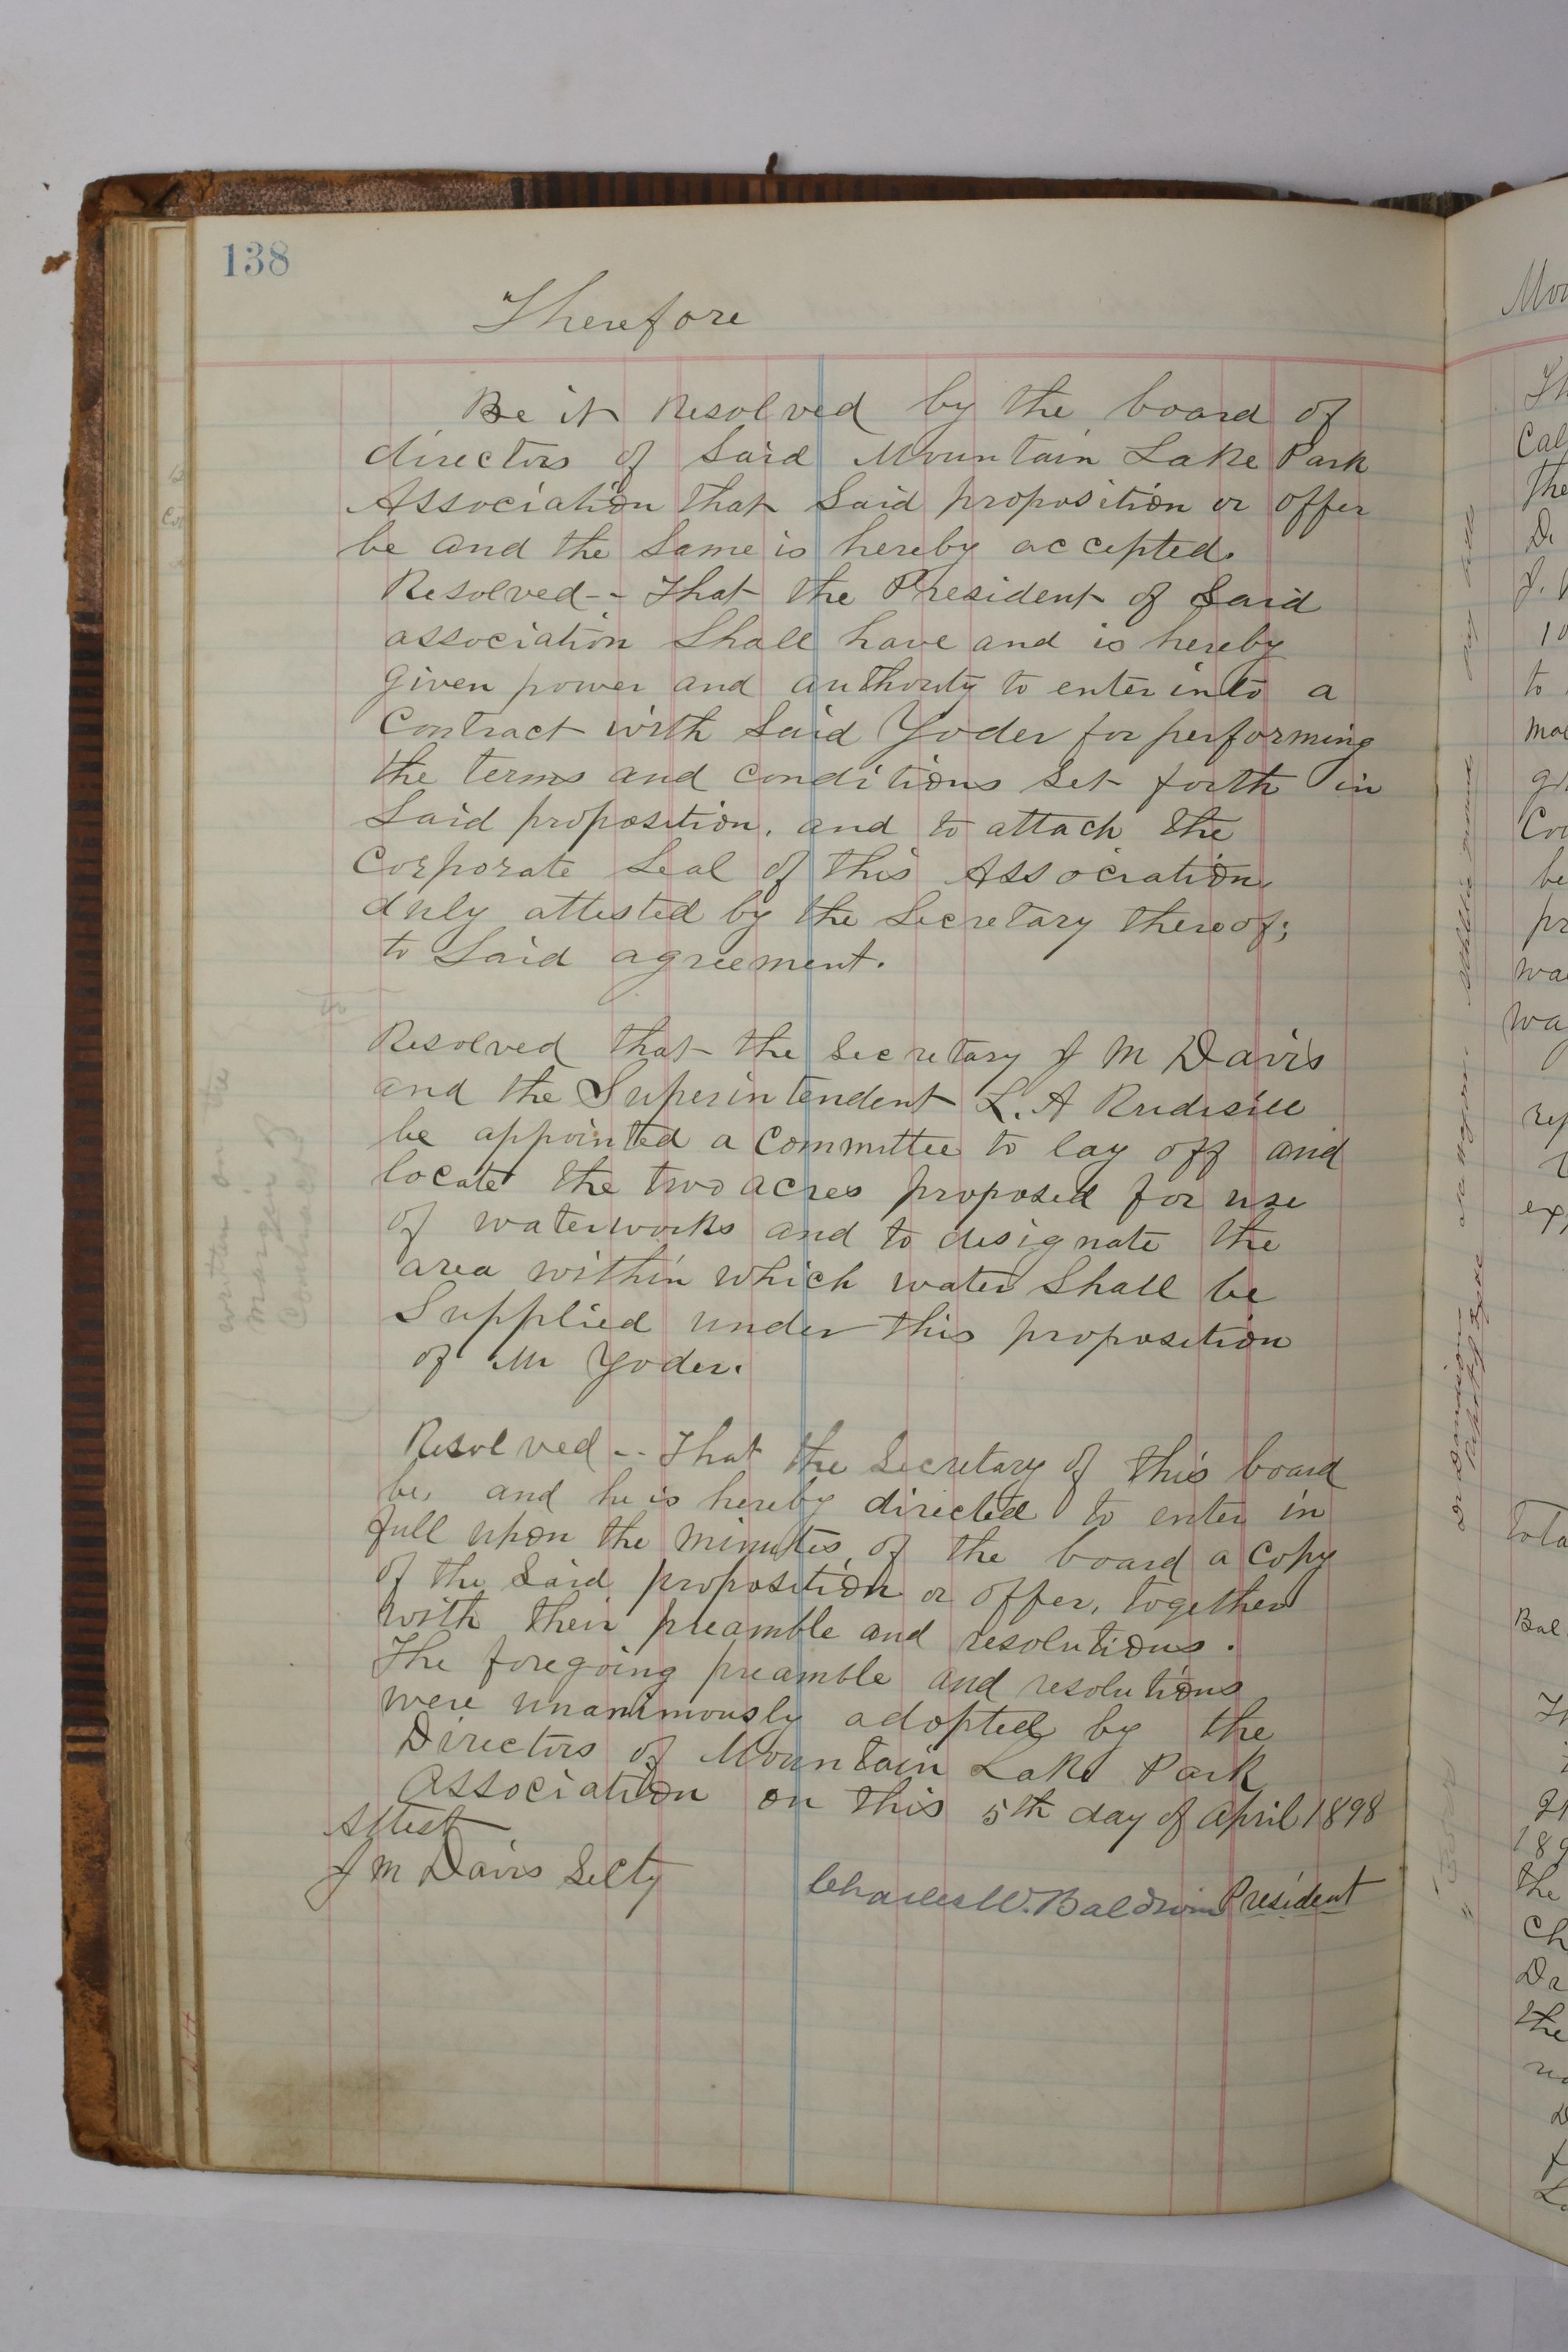 138
Therefore
Be it Resolved by the board of
directors of said Mountain Lake Park
Association that said proposition or offer
be and the same is hereby accepted.
Resolved -- That the President of Said
association shall have and is hereby
given power and authority to enter into a
Contract with said Yoder for performing
the terms and conditions set forth in
said proposition, and to attach the
Corporate seal of this Association,
duly attested by the Secretary thereof;
to said agreement.
Resolved that the Secretary J M Davis
and the Superintendent L. A Rudisill
be appointed a Committee to lay off and
locate the two acres proposed for use
of waterworks and to designate the
area within which water shall be
Supplied under this proposition
of Mr Yoder.
Resolved -- That the Secretary of this board
be, and he is hereby directed to enter in
full upon the minutes, of the board a copy
of the said proposition or offer, together
with their preamble and resolutions.
The foregoing preamble and resolutions
were unanimously adopted by the
Directors of Mountain Lake Park
Association on this 5th day of April 1898
Attest
J M Davis Secty
Charles W. Baldwin President
written on the
margin of
Contract
Mou
Th
Cal
the
D
J.
10
to
mac
gr
Cou
be
pr
wa
wa
rep
exp
Tota
Bal
189
the
Ch
Da
the